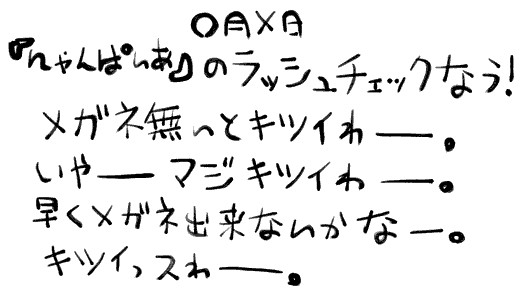 〇月×日
『にゃんぱいあ』のラッシュチェックなう!
メガネ無いとキツイわ――。
いや――マジキツイわ――。
早くメガネ出来ないかなー。
キツイっスわ――。